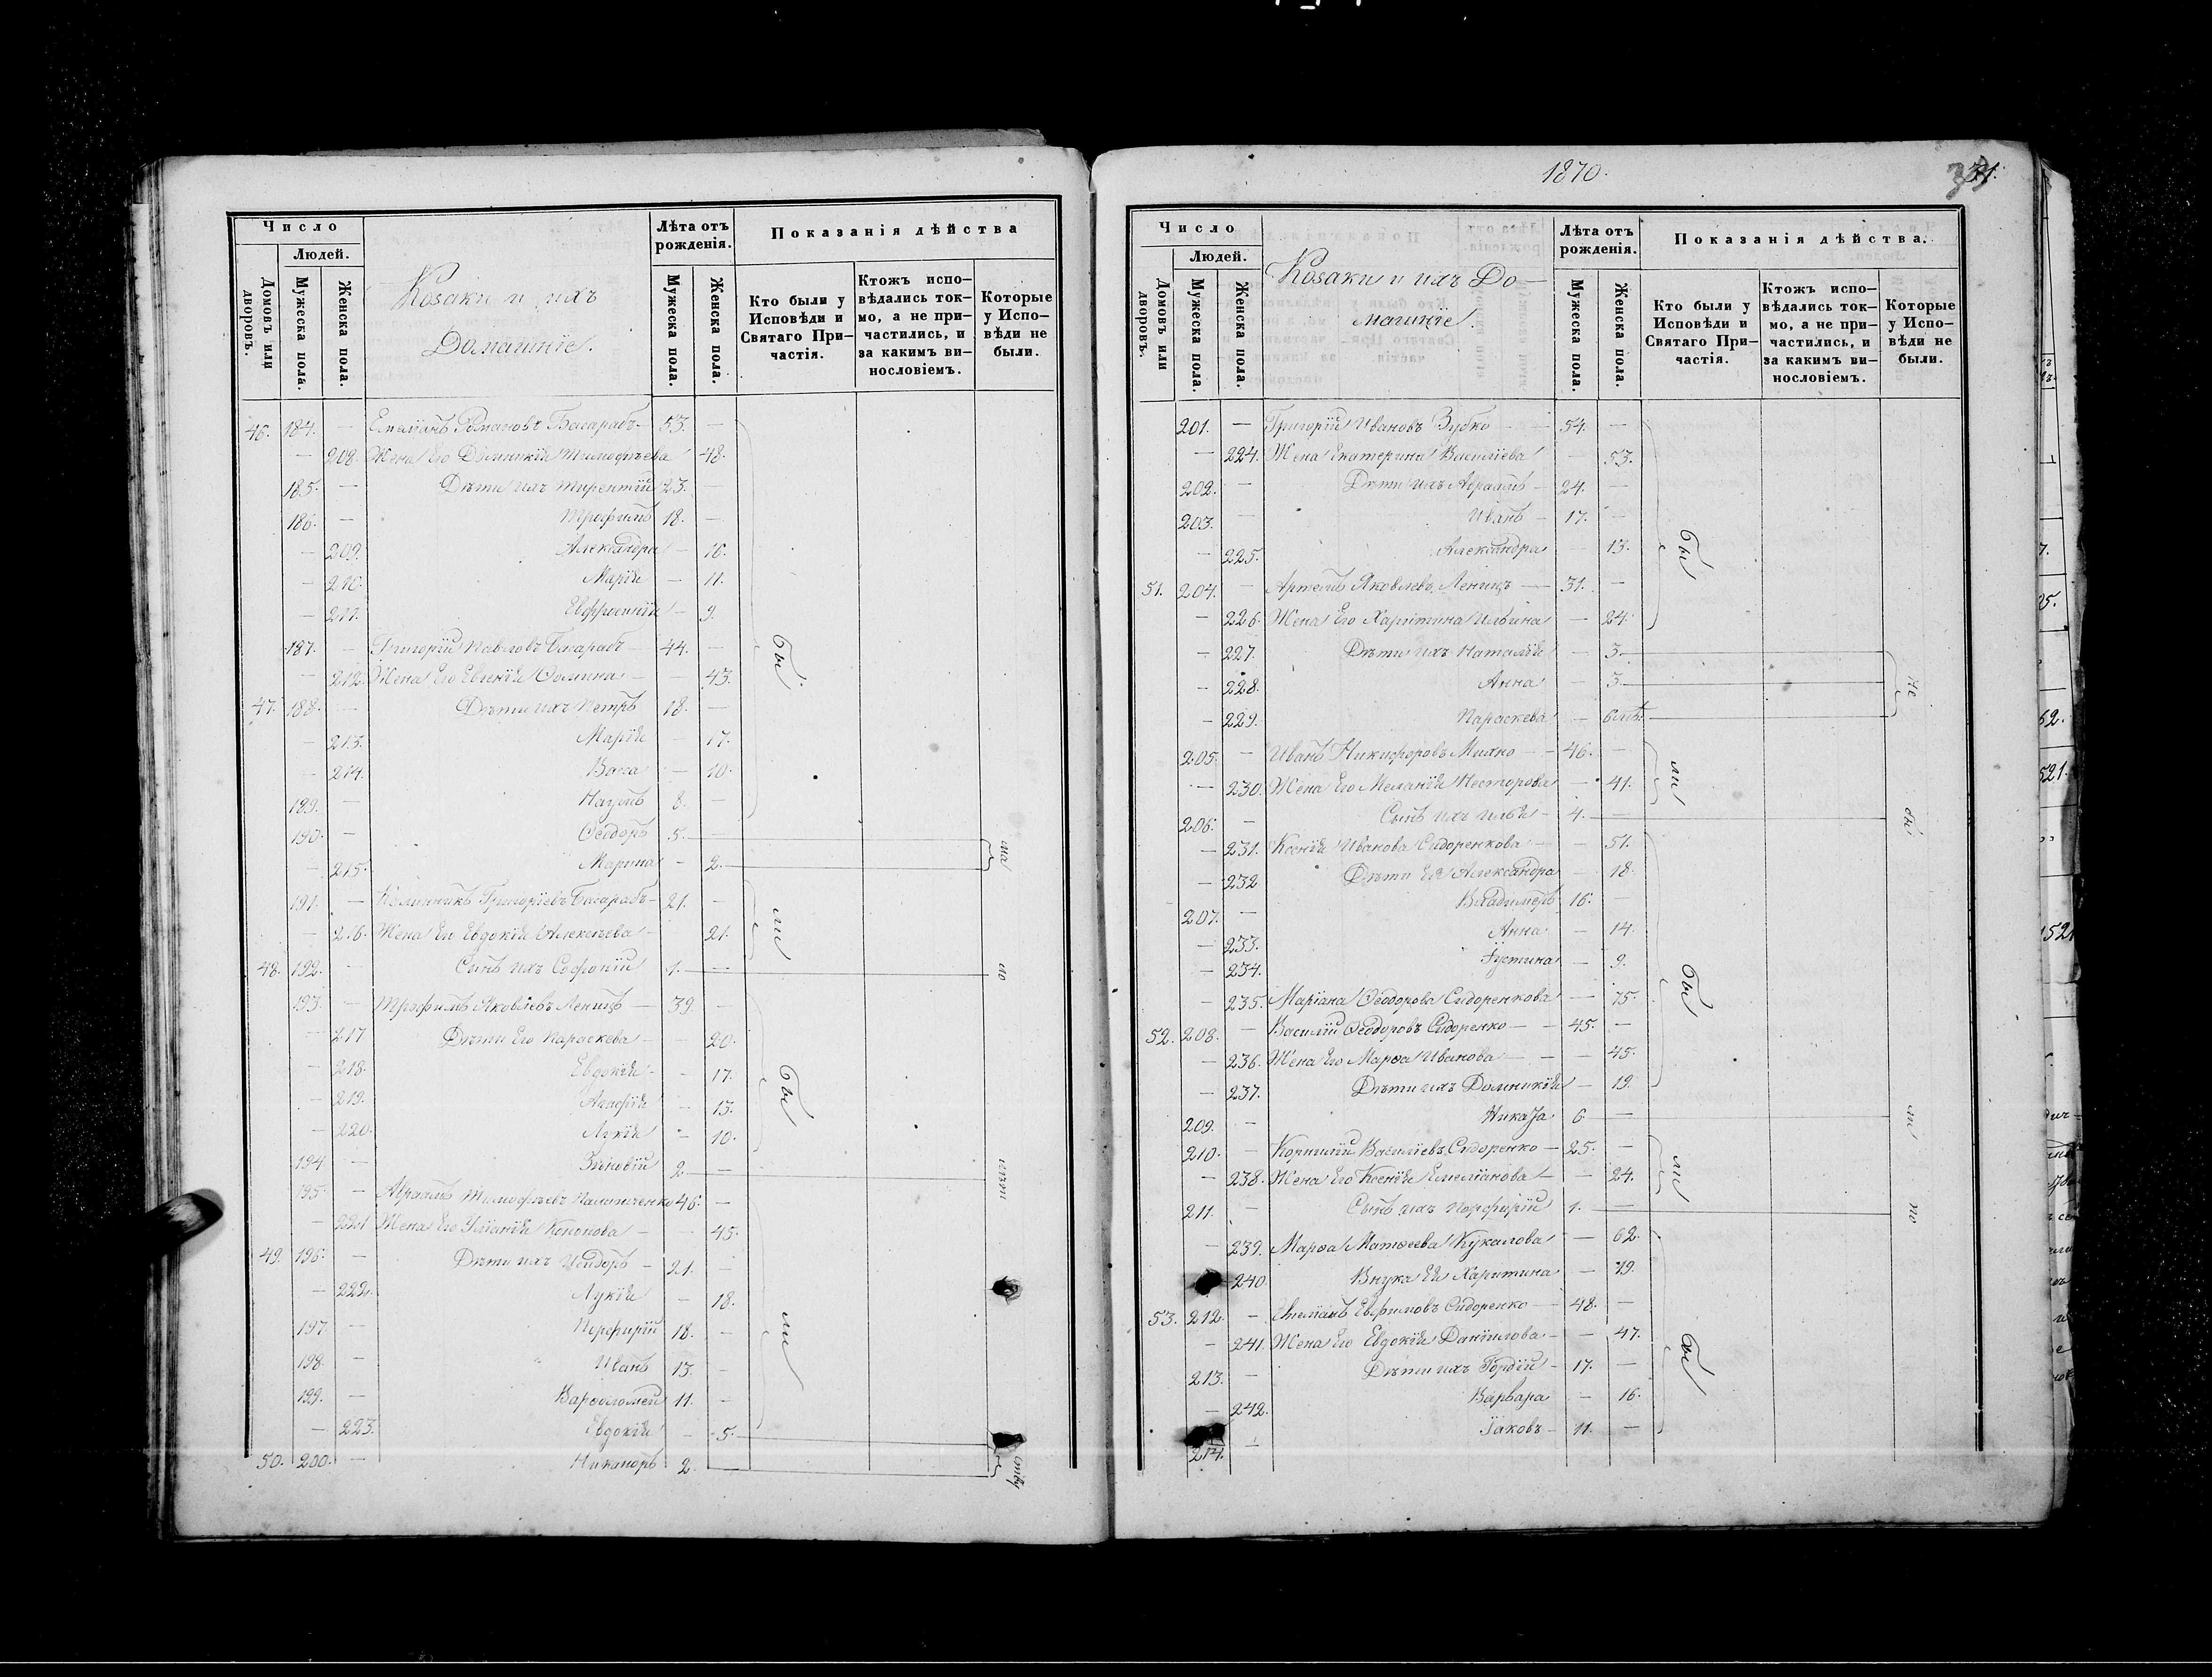 Число
Людей.
Домовъ или дворовъ.
Мужеска пола.
Женска пола.
Козаки и ихъ
Домашніе.
Лѣта отъ рожденія.
Мужеска пола.
Женска пола.
Показанія дѣйства
Кто были у Исповѣди и Святаго При-частія.
Ктожъ испо-вѣдались ток-мо, а не при-частились, и за какимъ ви-нословіемъ.
Которые у Испо-вѣди не были.
46. 184. — Емеліанъ Романовъ Басарабъ — 53. —
— 208. Жена Его Домникія Тимофѣева 48.
185. — Дѣти ихъ Терентій 23. —
186. — Трофимъ 18. —
— 209. Александра — 16.
— 210. Марія — 11.
— 211. Евфросинія — 9.
187. — Григорій Павловъ Басарабъ — 44. —
— 212. Жена Его Евгенія Фомина — 43.
47. 188. — Дѣти ихъ Петръ 18. —
— 213. Марія — 17.
— 214. Васса — 10.
189. — Наумъ 8. —
190. — Ѳеодоръ 5. —
— 215. Марина — 2.
191. — Калинникъ Григоріевъ Басарабъ — 21. —
— 216. Жена Его Евдокія Алексѣева — 21.
48. 192. — Сынъ ихъ Софроній 1. —
193. — Трофимъ Яковлевъ Леницъ — 39. —
— 217 Дѣти Его Параскева — 20.
— 218. Евдокія — 17.
— 219. Агафія — 13.
— 220. Лукія — 10.
194 — Зѣновій 2. —
195. — Авраамъ Тимофѣевъ 46. —
— 221 Жена Его Уліанія Кононова — 45.
49. 196. — Дѣти ихъ Исидоръ — 21. —
— 222. Лукія — 18.
197. — Порфирій 18. —
198. — Иванъ 13. —
199. — Варѳоломей 11. —
— 223. Евдокія — 5.
50. 200. — Никаноръ 2.
бы
ли
бы
ли
1870.
31.
Число
Людей.
Домовъ или дворовъ.
Мужеска пола.
Женска пола.
Козаки и ихъ До-
машніе.
Лѣта отъ рожденія.
Мужеска пола.
Женска пола.
Показанія дѣйства.
Кто были у Исповѣди и Святаго При-частія.
Ктожъ испо-вѣдались ток-мо, а не при-частились, и за какимъ ви-нословіемъ.
Которые у Испо-вѣди не были.
201. — Григорій Ивановъ Зубко — 54. —
— 224. Жена Екатерина Василіева — 53.
202. — Дѣти ихъ Авраамъ — 24. —
203. — Иванъ — 17. —
— 225. Александра — 13.
51. 204. — Артемъ Яковлевъ Леницъ — 31. —
— 226. Жена Его Харитина Ильина — 24.
— 227. Дѣти ихъ Наталія — 3.
— 228. Анна — 3.
— 229. Параскева — 6
205. — Иванъ Никифоровъ — 46. —
— 230. Жена Его Меланія Несторова — 41.
206. — Сынъ ихъ Илья — 4. —
— 231. Ксенія Иванова Сидоренкова — 51.
— 232 Дѣти Ея Александра — 18.
207. — Владимеръ 16. —
— 233. Анна — 14.
— 234. Іустина — 9.
— 235. Маріана Ѳеодорова Сидоренкова — 75.
52. 208. — Василій Ѳеодоровъ Сидоренко — 45. —
— 236. Жена Его Марѳа Иванова — 45.
— 237. Дѣти ихъ Домникія — 19.
209. — 6 —
210. — Корнилій Василіевъ Сидоренко — 25. —
— 238. Жена Его Ксенія Емеліанова — 24.
211. — Сынъ ихъ Порфирій 1. —
— 239. Марѳа Матѳеева Кукалова — 62.
240 Внука Ея Харитина — 19.
53. 212. — Емеліанъ Евфимовъ Сидоренко — 48. —
— 241. Жена Его Евдокія Даніилова — 47.
213. — Дѣти ихъ Гордій — 17. —
— 242. Варвара — 16.
214. — Іаковъ — 11. —
бы
ли
бы
ли
бы
не
бы
ли
по